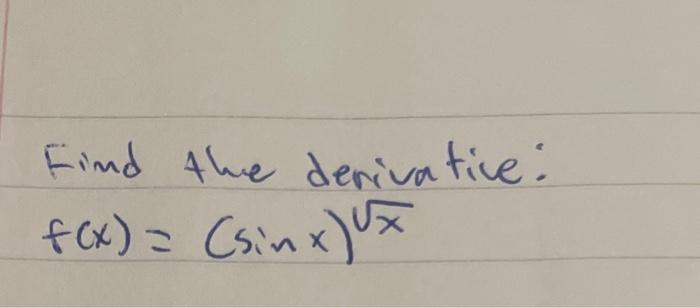 Find the derivative:
f(x) = (sin x)^√x